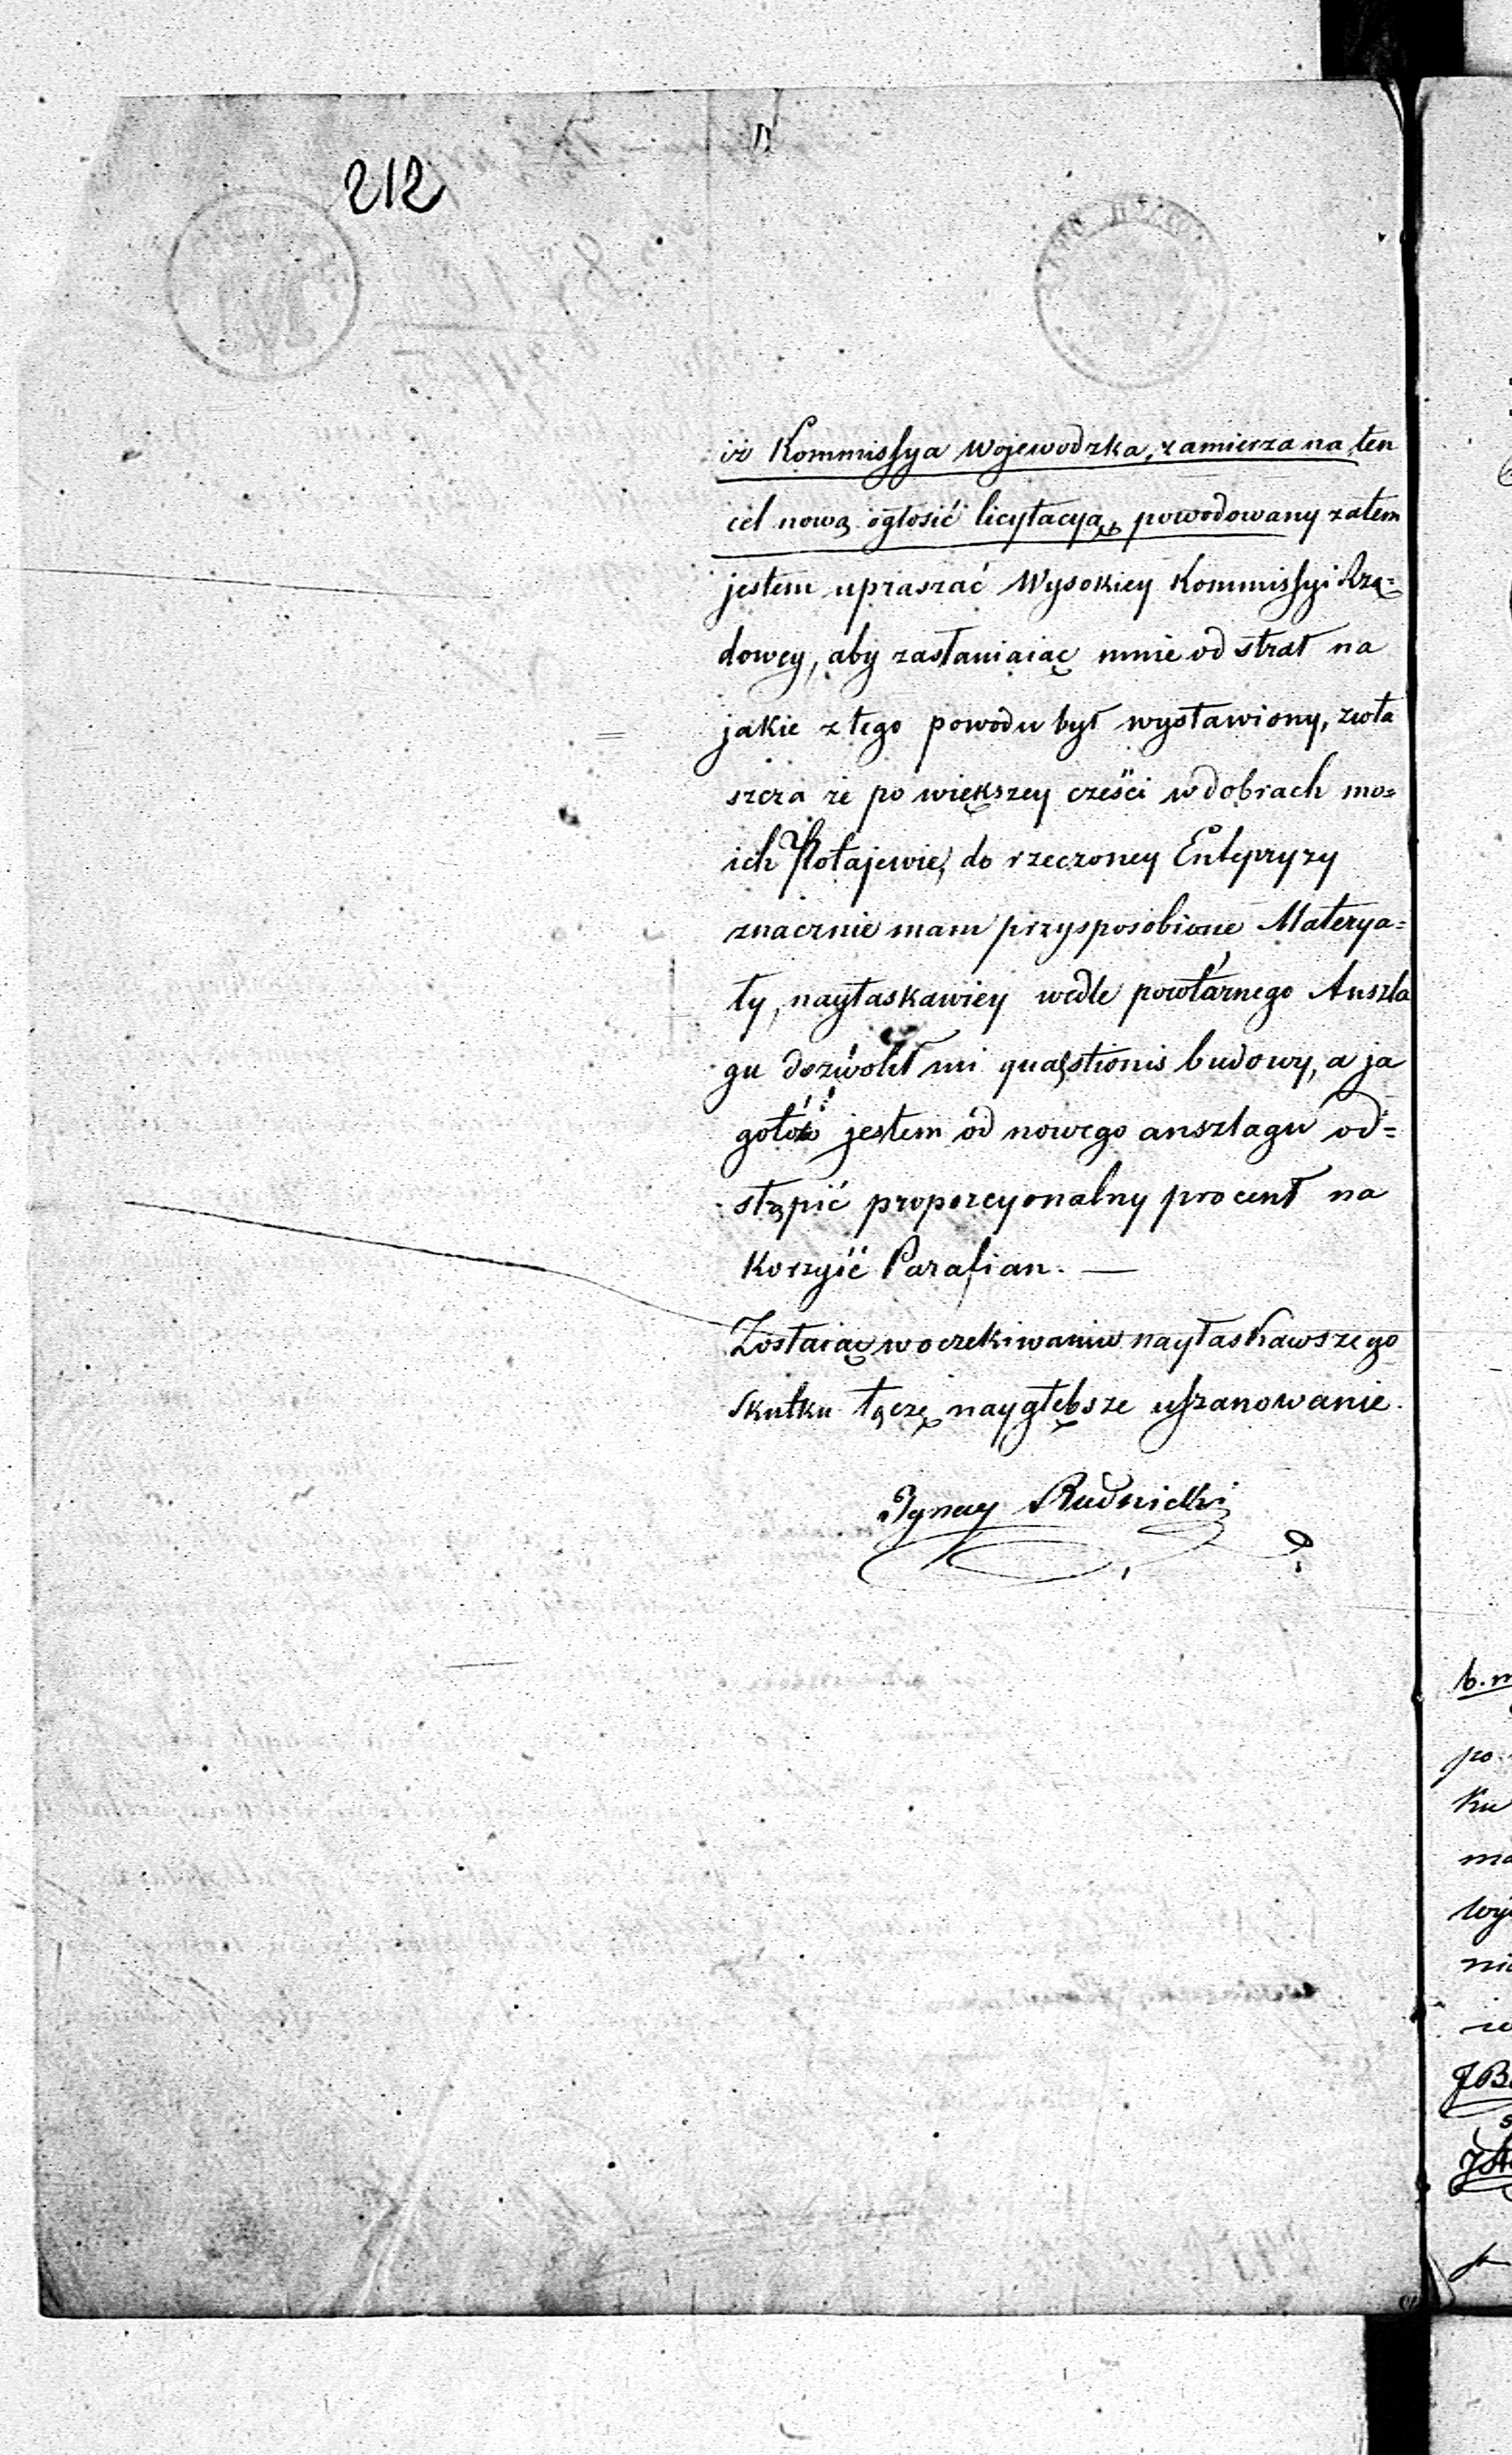 212
iż Kommissya Wojewodzka, zamierza na ten
cel nową ogłosić licytacyą, powodowany zatem
jestem upraszać Wysokiey Kommissyi Rzą=
dowey, aby zasłaniaiąc mnie od strat na
jakie z tego powodu był wystawiony, zwła
szcza że po większey cześci w dobrach mo=
ich Kołajewie, do rzeczoney Entepryzy
znacznie mam przysposobione Materya=
ły, nayłaskawiey wedle powtórnego Anszla
gu dozwolił mi quaestionis budowy, a ja
gotów jestem od nowego anszlagu od=
stąpić proporcyonalny procent na
Korzyść Parafian. —
Zostaiąc w oczekiwaniu nayłaskawszego
skutku łączę naygłębsze uszanowanie.
Ignacy Rudnicki